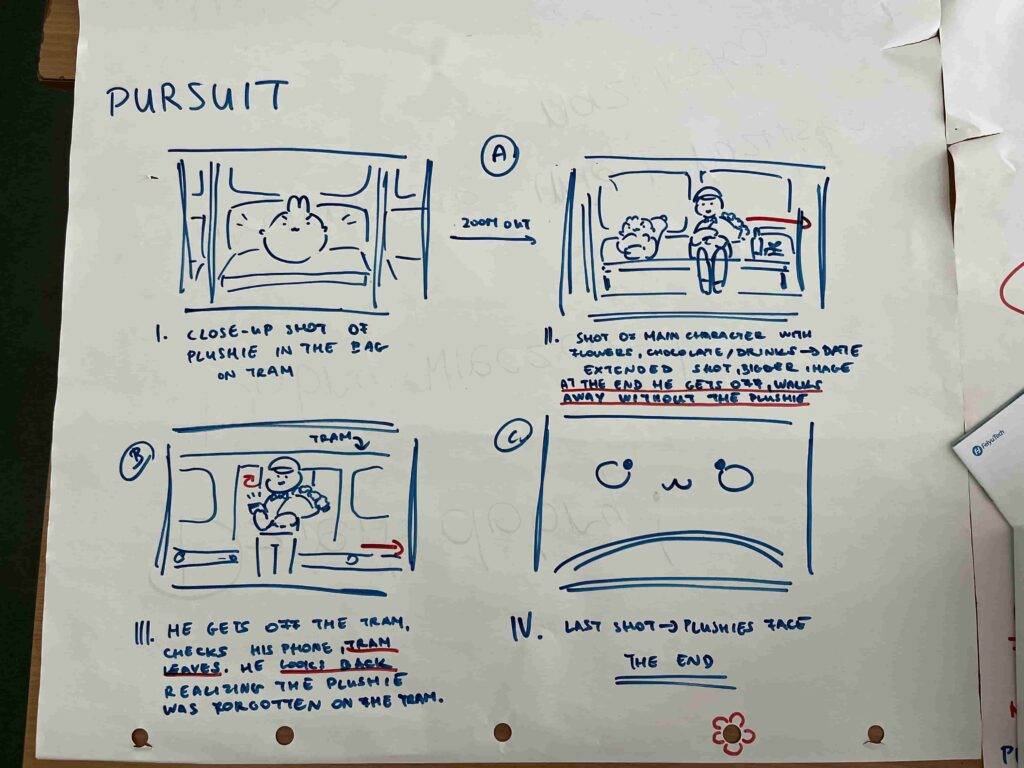 PURSUIT
A
ZOOM OUT
I. CLOSE-UP SHOT OF
PLUSHIE IN THE BAG
ON TRAM
II. SHOT OF MAIN CHARACTER WITH
FLOWERS, CHOCOLATE/DRINKS → DATE
EXTENDED SHOT, BIGGER IMAGE
AT THE END HE GETS OFF, WALKS
AWAY WITHOUT THE PLUSHIE
B
TRAM
III. HE GETS OFF THE TRAM,
CHECKS HIS PHONE, TRAM
LEAVES. HE LOOKS BACK
REALIZING THE PLUSHIE
WAS FORGOTTEN ON THE TRAM.
C
IV. LAST SHOT → PLUSHIES FACE
THE END